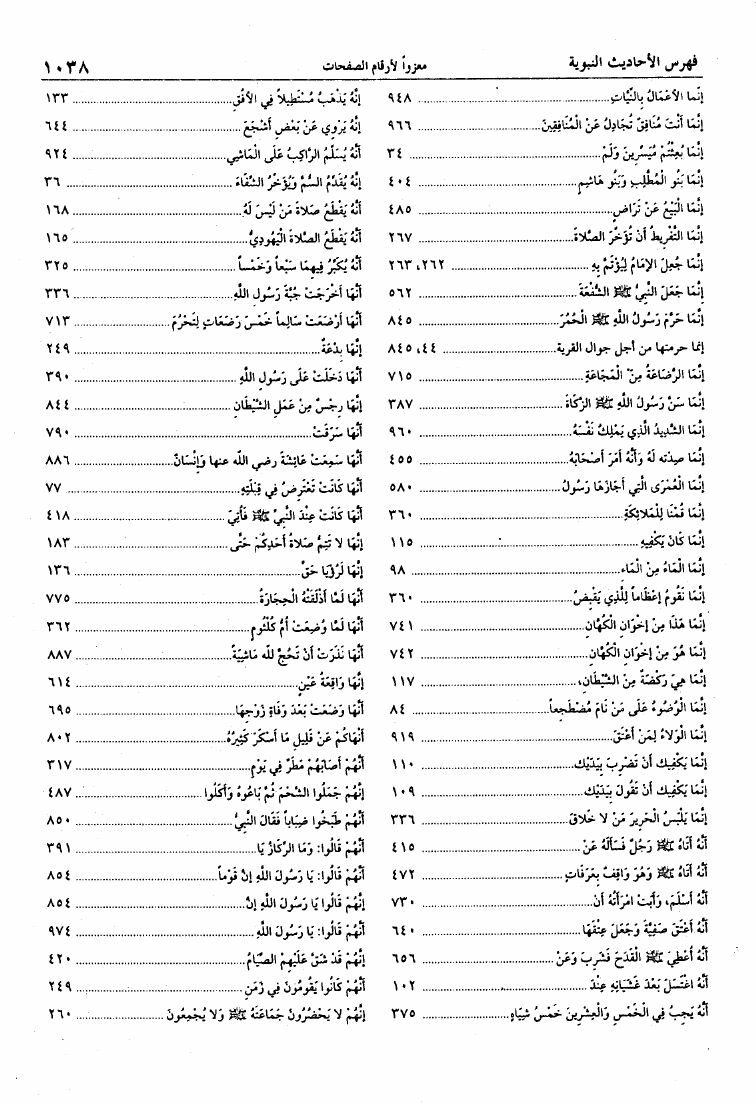 فهرس الأحاديث النبوية
معزواً لأرقام الصفحات
١٠٣٨
إنَّما الأَعْمَالُ بِالنِّيَّاتِ ٩٤٨
إنَّمَا أَنْتَ مُنَافِقٌ تُجَادِلُ عَنْ الْمُنَافِقِينَ ٩٦٦
إنَّمَا بُعِثْتُمْ مُيَسِّرِينَ وَلَمْ ٣٤
إنَّمَا بَنُو الْمُطَّلِبِ وَبَنُو هَاشِمٍ ٤٠٤
إنَّمَا الْبَيْعُ عَنْ تَرَاضٍ ٤٨٥
إنَّمَا التَّفْرِيطُ أَنْ تُؤَخَّرَ الصَّلاَةُ ٢٦٧
إنَّمَا جُعِلَ الإِمَامُ لِيُؤْتَمَّ بِهِ ٢٦٢، ٢٦٣
إنَّمَا جَعَلَ النَّبِيُّ ﷺ الشُّفْعَةَ ٥٦٢
إنَّمَا حَرَّمَ رَسُولُ اللَّهِ ﷺ الْحُمُرَ ٨٤٥
إنما حرمتها من أجل جوال القرية ٤٤، ٨٤٥
إنَّمَا الرَّضَاعَةُ مِنْ الْمَجَاعَةِ ٧١٥
إنَّمَا سَنَّ رَسُولُ اللَّهِ ﷺ الزَّكَاةَ ٣٨٧
إنَّمَا الشَّدِيدُ الَّذِي يَمْلِكُ نَفْسَهُ ٩٦٠
إنَّمَا صِدْتُه لَهُ وَأَنَّهُ أَمَرَ أَصْحَابَهُ ٤٥٥
إنَّمَا الْعُمْرَى الَّتِي أَجَازَهَا رَسُولُ ٥٨٠
إنَّمَا قُمْنَا لِلْمَلاَئِكَةِ ٣٦٠
إنَّمَا كَانَ يَكْفِيهِ ١١٥
إنَّمَا الْمَاءُ مِنْ الْمَاءِ ٩٨
إنَّمَا نَقُومُ إِعْظَاماً لِلَّذِي يَقْبِضُ ٣٦٠
إنَّمَا هَذَا مِنْ إِخْوَانِ الْكُهَّانِ ٧٤١
إنَّمَا هُوَ مِنْ إِخْوَانِ الْكُهَّانِ ٧٤٢
إنَّمَا هِيَ رَكْضَةٌ مِنَ الشَّيْطَانِ، ١١٧
إنَّمَا الْوُضُوءُ عَلَى مَنْ نَامَ مُضْطَجِعاً ٨٤
إنَّمَا الْوَلاَءُ لِمَنْ أَعْتَقَ ٩١٩
إنَّمَا يَكْفِيك أَنْ تَضْرِبَ بِيَدَيْك ١١٠
إنَّمَا يَكْفِيك أَنْ تَقُولَ بِيَدَيْك ١٠٩
إنَّمَا يَلْبَسُ الْحَرِيرَ مَنْ لا خَلاقَ ٣٣٦
أَنَّهُ أَتَاهُ ﷺ رَجُلٌ فَسَأَلَهُ عَنْ ٤١٥
أَنَّهُ أَتَاهُ ﷺ وَهُوَ وَاقِفٌ بِعَرَفَاتٍ ٤٧٢
أَنَّهُ أَسْلَمَ، وَأَبَت امْرَأَتُهُ أَنْ ٧٣٠
أَنَّهُ أَعْتَقَ صَفِيَّةَ وَجَعَلَ عِتْقَهَا ٦٤٠
أَنَّهُ أُعْطِيَ ﷺ الْقَدَحَ فَشَرِبَ وَعَنْ ٦٥٦
أَنَّهُ اغْتَسَلَ بَعْدَ غَشَيَانِهِ عِنْدَ ١٠٢
أَنَّهُ يَجِبُ فِي الْخَمْسِ وَالْعِشْرِينَ خَمْسُ شِيَاهٍ ٣٧٥
إنَّهُ يَذْهَبُ مُسْتَطِيلاً فِي الأُفُقِ ١٣٣
إنَّهُ يَرْوِي عَنْ بَعْضِ أَشْجَعَ ٦٤٤
أَنَّهُ يُسَلِّمُ الرَّاكِبُ عَلَى الْمَاشِي ٩٢٤
إنَّهُ يُقَدِّمُ السُّمَّ وَيُؤَخِّرُ الشِّفَاءَ ٣٦
أَنَّهُ يَقْطَعُ صَلاَةَ مَنْ لَيْسَ لَهُ ١٦٨
أَنَّهُ يَقْطَعُ الصَّلاَةَ الْيَهُودِيُّ ١٦٥
أَنَّهُ يُكَبِّرُ فِيهِمَا سَبْعاً وَخَمْساً ٣٢٥
أَنَّهَا أَخْرَجَتْ جُبَّةَ رَسُولِ اللَّهِ ٣٣٦
أَنَّهَا أَرْضَعَتْ سَالِماً خَمْسَ رَضَعَاتٍ لِتَحْرُمَ ٧١٣
إِنَّهَا بِدْعَةٌ ٢٤٩
أَنَّهَا دَخَلَتْ عَلَى رَسُولِ اللَّهِ ٣٩٠
إِنَّهَا رِجْسٌ مِنْ عَمَلِ الشَّيْطَانِ ٨٤٤
أَنَّهَا سَرَقَتْ ٧٩٠
أَنَّهَا سَمِعَتْ عَائِشَةَ رضي الله عنها وَإِنْسَانٌ ٨٨٦
أَنَّهَا كَانَتْ تَعْتَرِضُ فِي قِبْلَتِهِ ٧٧
أَنَّهَا كَانَتْ عِنْدَ النَّبِيِّ ﷺ فَأُتِيَ ٤١٨
إِنَّهَا لا تَتِمُّ صَلاَةُ أَحَدِكُمْ حَتَّى ١٨٣
إِنَّهَا لَرُؤْيَا حَقٌّ ١٣٦
أَنَّهَا لَمَّا أَذْلَقَتْهُ الْحِجَارَةُ ٧٧٥
أَنَّهَا لَمَّا وُضِعَتْ أُمُّ كُلْثُومٍ ٣٦٢
أَنَّهَا نَذَرَتْ أَنْ تَحُجَّ لله مَاشِيَةً ٨٨٧
إِنَّهَا وَاقِعَةُ عَيْنٍ ٦١٤
أَنَّهَا وَضَعَتْ بَعْدَ وَفَاةِ زَوْجِهَا ٦٩٥
أَنْهَاكُمْ عَنْ قَلِيلِ مَا أَسْكَرَ كَثِيرُهُ ٨٠٢
أَنَّهُمْ أَصَابَهُمْ مَطَرٌ فِي يَوْمٍ ٣١٧
إِنَّهُمْ جَمَلُوا الشَّحْمَ ثُمَّ بَاعُوهُ وَأَكَلُوا ٤٨٧
أَنَّهُمْ طَبَخُوا ضِبَاباً فَقَالَ النَّبِيُّ ٨٥٠
أَنَّهُمْ قَالُوا: وَمَا الرِّكَازُ يَا ٣٩١
أَنَّهُمْ قَالُوا: يَا رَسُولَ اللَّهِ إنَّ قَوْماً ٨٥٤
إِنَّهُمْ قَالُوا يَا رَسُولَ اللَّهِ إنَّ ٨٥٤
أَنَّهُمْ قَالُوا: يَا رَسُولَ اللَّهِ ٩٧٤
إِنَّهُمْ قَدْ شَقَّ عَلَيْهِمُ الصِّيَامُ ٤٢٠
أَنَّهُمْ كَانُوا يَقُومُونَ فِي زَمَنِ ٢٤٩
إِنَّهُمْ لا يَحْضُرُونَ جَمَاعَتَهُ ﷺ وَلا يُجْمِعُونَ ٢٦٠